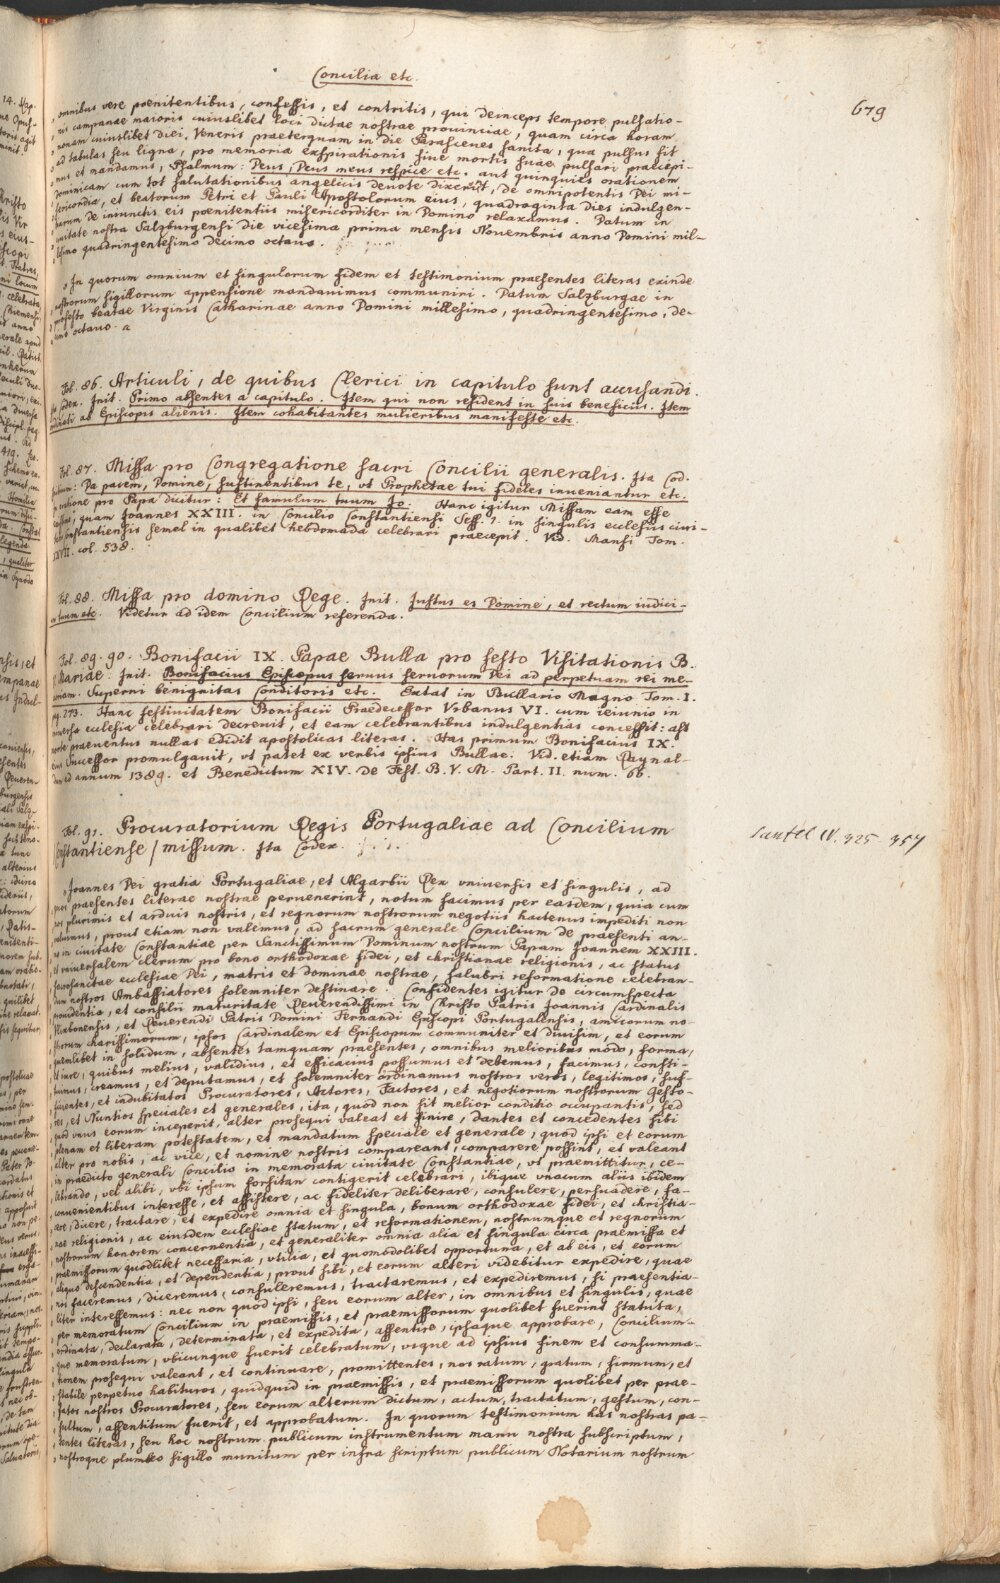 Concilia etc.
679
omnibus vere poenitentibus, confessis, et contritis, qui deinceps tempore pulsatio-
nis campanae maioris cuiuslibet loci dictae nostrae provinciae, quam circa horam
nonam cuiuslibet diei Veneris praeterquam in die Parasceues sancta, qua pulsus fit
ad tabulas seu ligna, pro memoria exspirationis sive mortis suae pulsari praecepi-
mus et mandamus, Psalmum: Deus, Deus meus respice etc. aut quinquies orationem
Dominicam cum tot salutationibus angelicis devote dixerit, de omnipotentis Dei mi-
sericordia, et beatorum Petri et Pauli Apostolorum eius, quadraginta dies indulgen-
tiarum de iniunctis eis poenitentiis misericorditer in Domino relaxamus. Datum in
civitate nostra Salzburgensi die vicesima prima mensis Novembris anno Domini mil-
lesimo quadringentesimo decimo octavo.
In quorum omnium et singulorum fidem et testimonium praesentes literas exinde
nostrorum sigillorum appensione mandavimus communiri. Datum Salzburgae in
profesto beatae Virginis Catharinae anno Domini millesimo, quadringentesimo, de-
cimo octavo.
Fol. 86. Articuli, de quibus Clerici in capitulo sunt accusandi.
Ita Codex. Init. Primo absentes a capitulo. Item qui non resident in suis beneficiis. Item
ordinati ab Episcopis alienis. Item cohabitantes mulieribus manifeste etc.
Fol. 87. Missa pro Congregatione sacri Concilii generalis. Ita Cod.
Initium: Da pacem, Domine, sustinentibus te, ut Prophetae tui fideles inveniantur etc.
In oratione pro Papa dicitur: Et famulum tuum Jo. Hanc igitur Missam eam esse
quam Joannes XXIII. in Concilio Constantiensi Sess. 1. in singulis ecclesiis civi-
tatis Constantiensis semel in qualibet hebdomada celebrari praecepit. Vid. Mansi Tom.
XXVII. col. 538.
Fol. 88. Missa pro domino Rege. Init. Justus es Domine, et rectum iudici-
um tuum etc. Videtur ad idem Concilium referenda.
Fol. 89. 90. Bonifacii IX. Papae Bulla pro festo Visitationis B.
V. Mariae. Init. Bonifacius Episcopus servus servorum Dei ad perpetuam rei me-
moriam. Superni benignitas Conditoris etc. Extat in Bullario Magno Tom. I.
pag. 293. Hanc festivitatem Bonifacii Praedecessor Urbanus VI. cum ieiunio in
universa ecclesia celebrari decrevit, et eam celebrantibus indulgentias concessit: ast
morte praeventus nullas edidit apostolicas literas. Has primum Bonifacius IX.
eius Successor promulgavit, ut patet ex verbis ipsius Bullae. Vid. etiam Raynal-
dum ad annum 1389. et Benedictum XIV. de Fest. B. V. M. Part. II. num. 66.
Fol. 91. Procuratorium Regis Portugaliae ad Concilium
Constantiense missum. Ita Codex.
IV. 325 357
Joannes Dei gratia Portugaliae, et Algarbii Rex universis et singulis, ad
quos praesentes literae nostrae pervenerint, notum facimus per easdem, quia cum
nos plurimis et arduis nostris, et regnorum nostrorum negotiis hactenus impediti non
valuimus, prout etiam non valemus, ad sacrum generale Concilium de praesenti an-
no in civitate Constantiae per Sanctissimum Dominum nostrum Papam Joannem XXIII.
et universalem clerum pro bono orthodoxae fidei, et christianae religionis, ac status
sacrosanctae ecclesiae Dei, matris et dominae nostrae, salubri reformatione celebran-
dum nostros Ambassiatores solemniter destinare. Confidentes igitur de circumspecta
providentia, et consilii maturitate Reverendissimi in Christo Patris Joannis Cardinalis
Ulixbonensis, et Reverendi Patris Domini Fernandi Episcopi Portugalensis, amicorum no-
strorum charissimorum, ipsos Cardinalem et Episcopum communiter et divisim, et eorum
quemlibet in solidum, absentes tamquam praesentes, omnibus melioribus modo, forma,
et iure, quibus melius, validius, et efficacius possumus et debemus, facimus, consti-
tuimus, creamus, et deputamus, et solemniter ordinamus nostros veros, legitimos, suf-
ficientes, et indubitatos Procuratores, Actores, Factores, et negotiorum nostrorum Gesto-
res, et Nuntios speciales et generales, ita, quod non sit melior conditio occupantis, sed
quod unus eorum inceperit, alter prosequi valeat et finire, dantes et concedentes sibi
plenam et liberam potestatem, et mandatum speciale et generale, quod ipsi et eorum
alter pro nobis, ac vice, et nomine nostris compareant, comparere possint, et valeant
in praedicto generali Concilio in memorata civitate Constantiae, ut praemittitur, ce-
lebrando, vel alibi, ubi ipsum forsitan contigerit celebrari, ibique unacum aliis ibidem
convenientibus interesse, et assistere, ac fideliter deliberare, consulere, persuadere, fa-
cere, dicere, tractare, et expedire omnia et singula, bonum orthodoxae fidei, et christia-
nae religionis, ac eiusdem ecclesiae statum, et reformationem, nostrumque et regnorum
nostrorum honorem concernentia, et generaliter omnia alia et singula circa praemissa et
praemissorum quodlibet necessaria, utilia, et quomodolibet opportuna, et ab eis, et eorum
aliquo descendentia, et dependentia, prout sibi, et eorum alteri videbitur expedire, quae
nos faceremus, diceremus, consuleremus, tractaremus, et expediremus, si praesentia-
liter interessemus: nec non quod ipsi, seu eorum alter, in omnibus et singulis, quae
per memoratum Concilium in praemissis, et praemissorum quolibet fuerint statuta,
ordinata, declarata, determinata, et expedita, assentire, ipsaque approbare, Concilium-
que memoratum, ubicunque fuerit celebratum, usque ad ipsius finem et consumma-
tionem prosequi valeant, et continuare, promittentes, nos ratum, gratum, firmum, et
stabile perpetuo habituros, quidquid in praemissis, et praemissorum quolibet per prae-
fatos nostros Procuratores, seu eorum alterum dictum, actum, tractatum, gestum, con-
sultum, assentitum fuerit, et approbatum. In quorum testimonium has nostras pa-
tentes literas, seu hoc nostrum publicum instrumentum manu nostra subscriptum,
nostroque plumbeo sigillo munitum per infra scriptum publicum Notarium nostrum